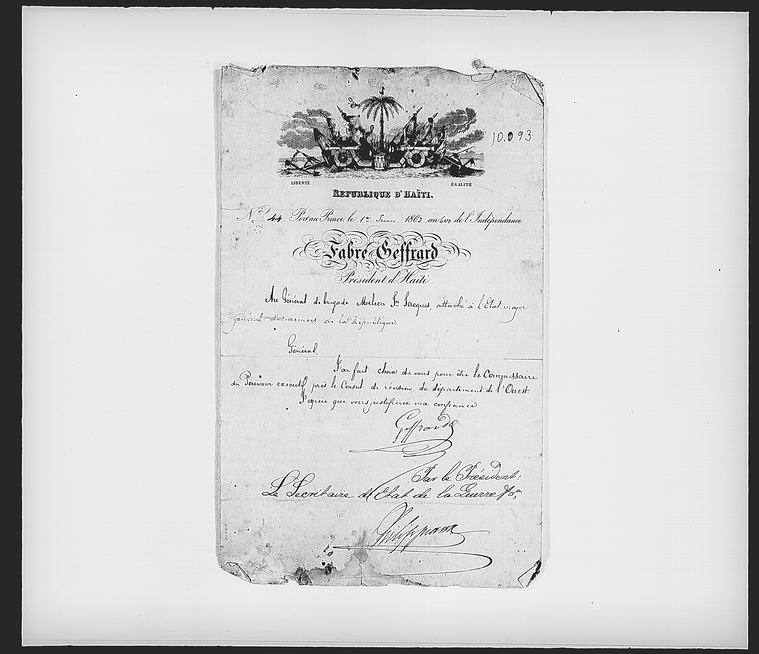 10.093
LIBERTÉ ÉGALITÉ
REPUBLIQUE D'HAÏTI.
No. 44 Port au Prince, le 1er Juin 1863, an 60e de l'Indépendance
Fabre Geffrard
Président d'Haïti
Au Général de brigade St Jacques, attaché à l'Etat major
général des armées de la République.
Général,
J'ai fait choix de vous pour être le Commissaire
du Pouvoir exécutif près le Conseil de révision du département de l'Ouest.
J'espère que vous justifierez ma confiance
Geffrard
Par le Président:
Le Secrétaire d'Etat de la Guerre &a